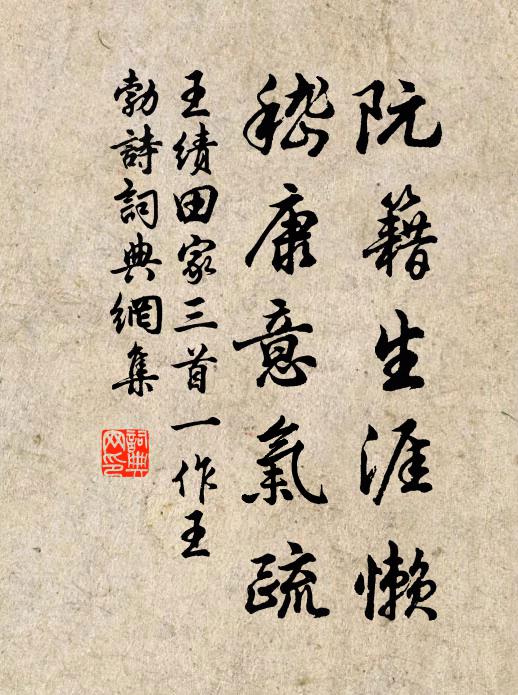 阮籍生涯懒
嵇康意氣疏
王績田家三首一作王
勃詩詞典網集
詞典
网印